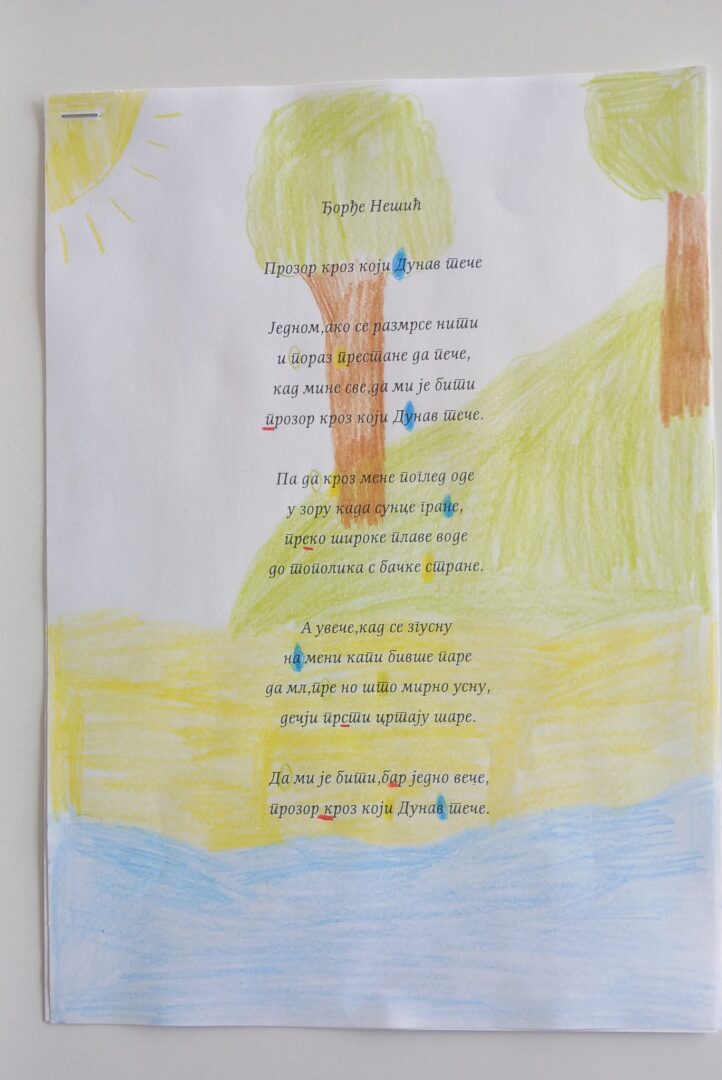 Ђорђе Нешић
Прозор кроз који Дунав тече
Једном,ако се размрсе нити
и пораз престане да пече,
кад мине све,да ми је бити
прозор кроз који Дунав тече.
Па да кроз мене поглед оде
у зору када сунце гране,
преко широке плаве воде
до тополика с бачке стране.
А увече,кад се згусну
на мени капи бивше паре
да мл,пре но што мирно усну,
дечји прсти цртају шаре.
Да ми је бити,бар једно вече,
прозор кроз који Дунав тече.